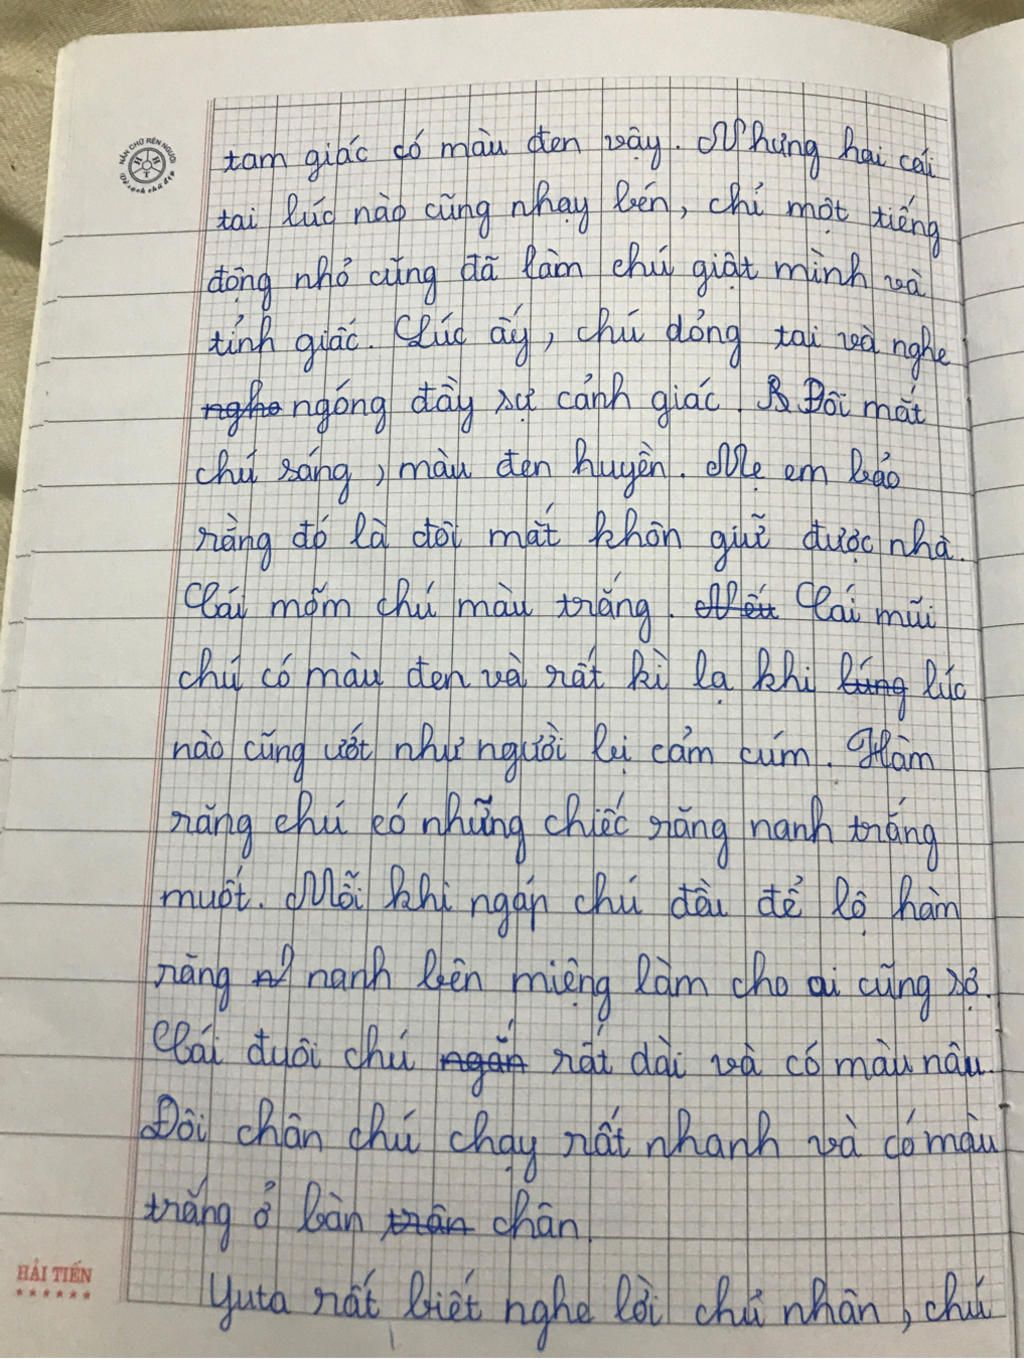 NẮN CHỮ RÈN NGƯỜI
tam giác có màu đen vậy. Nhưng hai cái
tai lúc nào cũng nhạy bén, chỉ một tiếng
động nhỏ cũng đã làm chú giật mình và
tỉnh giấc. Lúc ấy, chú dỏng tai và nghe
nghe ngóng đầy sự cảnh giác. Đôi mắt
chú sáng, màu đen huyền. Mẹ em bảo
rằng đó là đôi mắt khôn giữ được nhà.
Cái mõm chú màu trắng. Cái mũi
chú có màu đen và rất kì lạ khi lúng lúc
nào cũng ướt như người bị cảm cúm. Hàm
răng chú có những chiếc răng nanh trắng
muốt. Mỗi khi ngáp chú đều để lộ hàm
răng nanh bên miệng làm cho ai cũng sợ.
Cái đuôi chú ngắn rất dài và có màu nâu.
Đôi chân chú chạy rất nhanh và có màu
trắng ở bàn trân chân.
Yuta rất biết nghe lời chủ nhân, chú
HẢI TIẾN